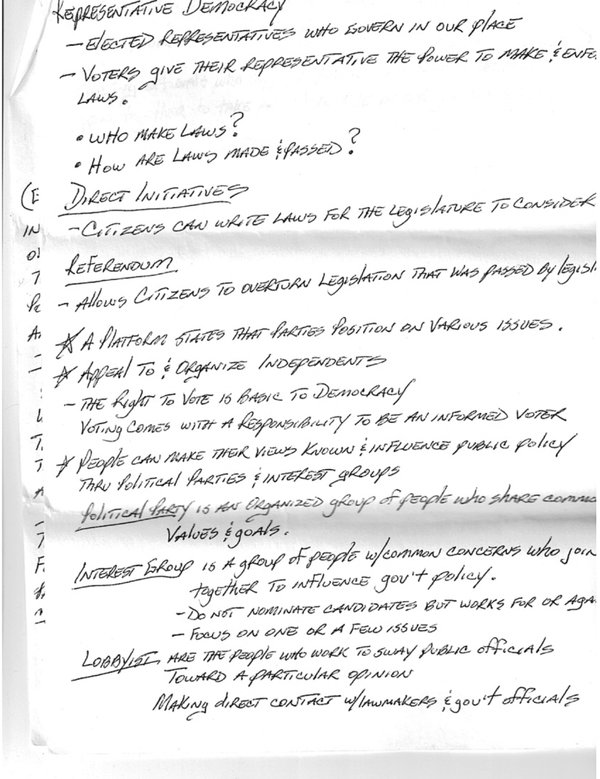 Representative Democracy
- Elected Representatives who govern in our place
- Voters give their representative the power to make & enfo
laws.
• Who make laws?
• How are laws made & passed?
(E
Direct Initiatives
IN
- Citizens can write laws for the legislature to consider
Referendum
- Allows citizens to overturn legislation that was passed by legisl
☆ A Platform states that parties position on various issues.
☆ Appeal to & organize Independents
- The Right to Vote is basic to Democracy
Voting comes with a responsibility to be an informed voter
☆ People can make their views known & influence public policy
thru political parties & interest groups
Political Party is an organized group of people who share commo
values & goals.
Interest Group is a group of people w/common concerns who join
together to influence gov't policy.
- Do not nominate candidates but works for or aga
- Focus on one or a few issues
Lobbyist are the people who work to sway public officials
toward a particular opinion
Making direct contact w/lawmakers & gov't officials